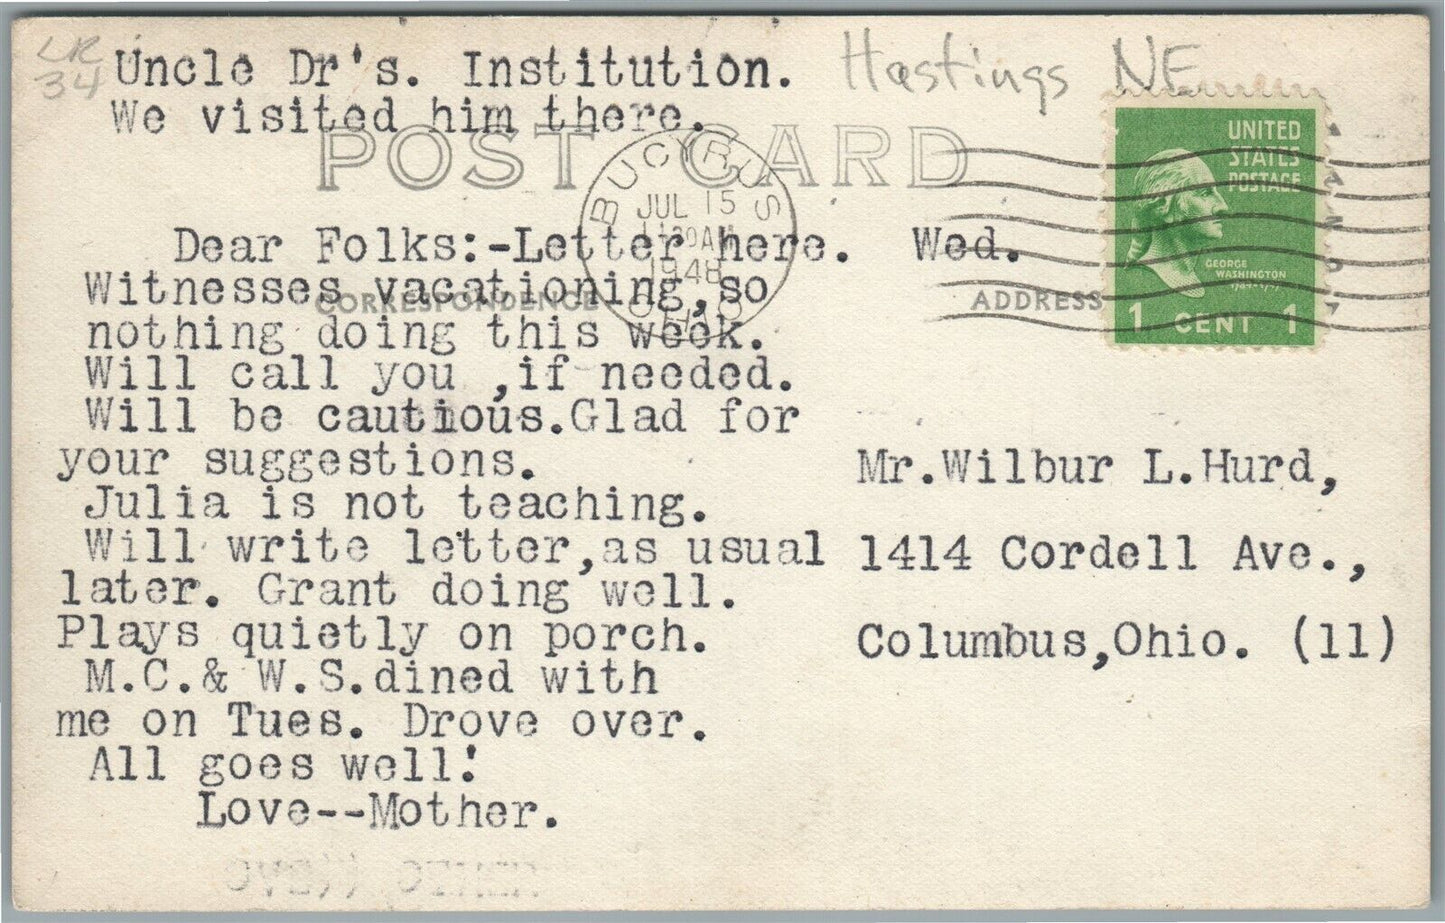 LR
34
Uncle Dr's. Institution.
We visited him there.
Hastings NE
POST CARD
BUCYRUS
JUL 15
AM
1948
OHIO
UNITED
STATES
POSTAGE
GEORGE
WASHINGTON
1 CENT 1
CORRESPONDENCE
ADDRESS
Dear Folks:-Letter here. Wed.
Witnesses vacationing,so
nothing doing this week.
Will call you ,if needed.
Will be cautious.Glad for
your suggestions.
Julia is not teaching.
Will write letter,as usual
later. Grant doing well.
Plays quietly on porch.
M.C.& W.S.dined with
me on Tues. Drove over.
All goes well!
Love--Mother.
Mr.Wilbur L.Hurd,
1414 Cordell Ave.,
Columbus,Ohio. (11)